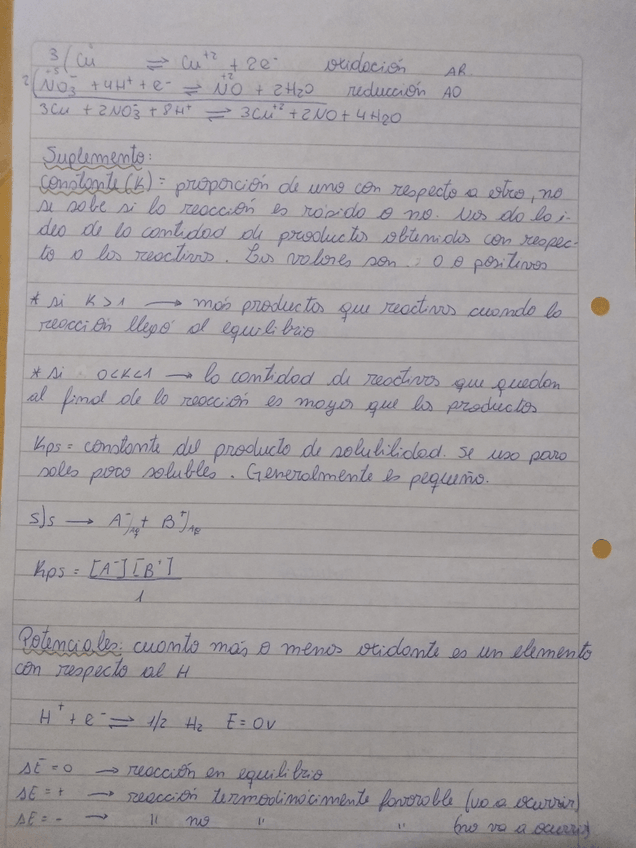 3 ( Cu⁰ ⇌ Cu⁺² + 2e⁻ oxidación AR
2 ( NO₃⁻ + 4H⁺ + e⁻ ⇌ NO + 2H₂O reducción AO
+5 +2
3Cu + 2NO₃⁻ + 8H⁺ ⇌ 3Cu⁺² + 2NO + 4H₂O
Suplemento:
Constante (K) = proporción de uno con respecto a otro, no
se sabe si la reacción es rápida o no. Nos da la i-
dea de la cantidad de productos obtenidos con respec-
to a los reactivos. Los valores son 0 o positivos
* si K > 1 → más productos que reactivos cuando la
reacción llegó al equilibrio
* si 0<K<1 → la cantidad de reactivos que quedan
al final de la reacción es mayor que los productos
Kps = constante del producto de solubilidad. Se usa para
sales poco solubles. Generalmente es pequeño.
S)s → A⁻)aq + B⁺)aq
Kps = [A⁻][B⁺]
1
Potenciales: cuanto más o menos oxidante es un elemento
con respecto al H
H⁺ + e⁻ ⇌ 1/2 H₂ E = 0V
ΔE = 0 → reacción en equilibrio
ΔE = + → reacción termodinácimente favorable (va a ocurrir)
ΔE = - → " no " " (no va a ocurrir)